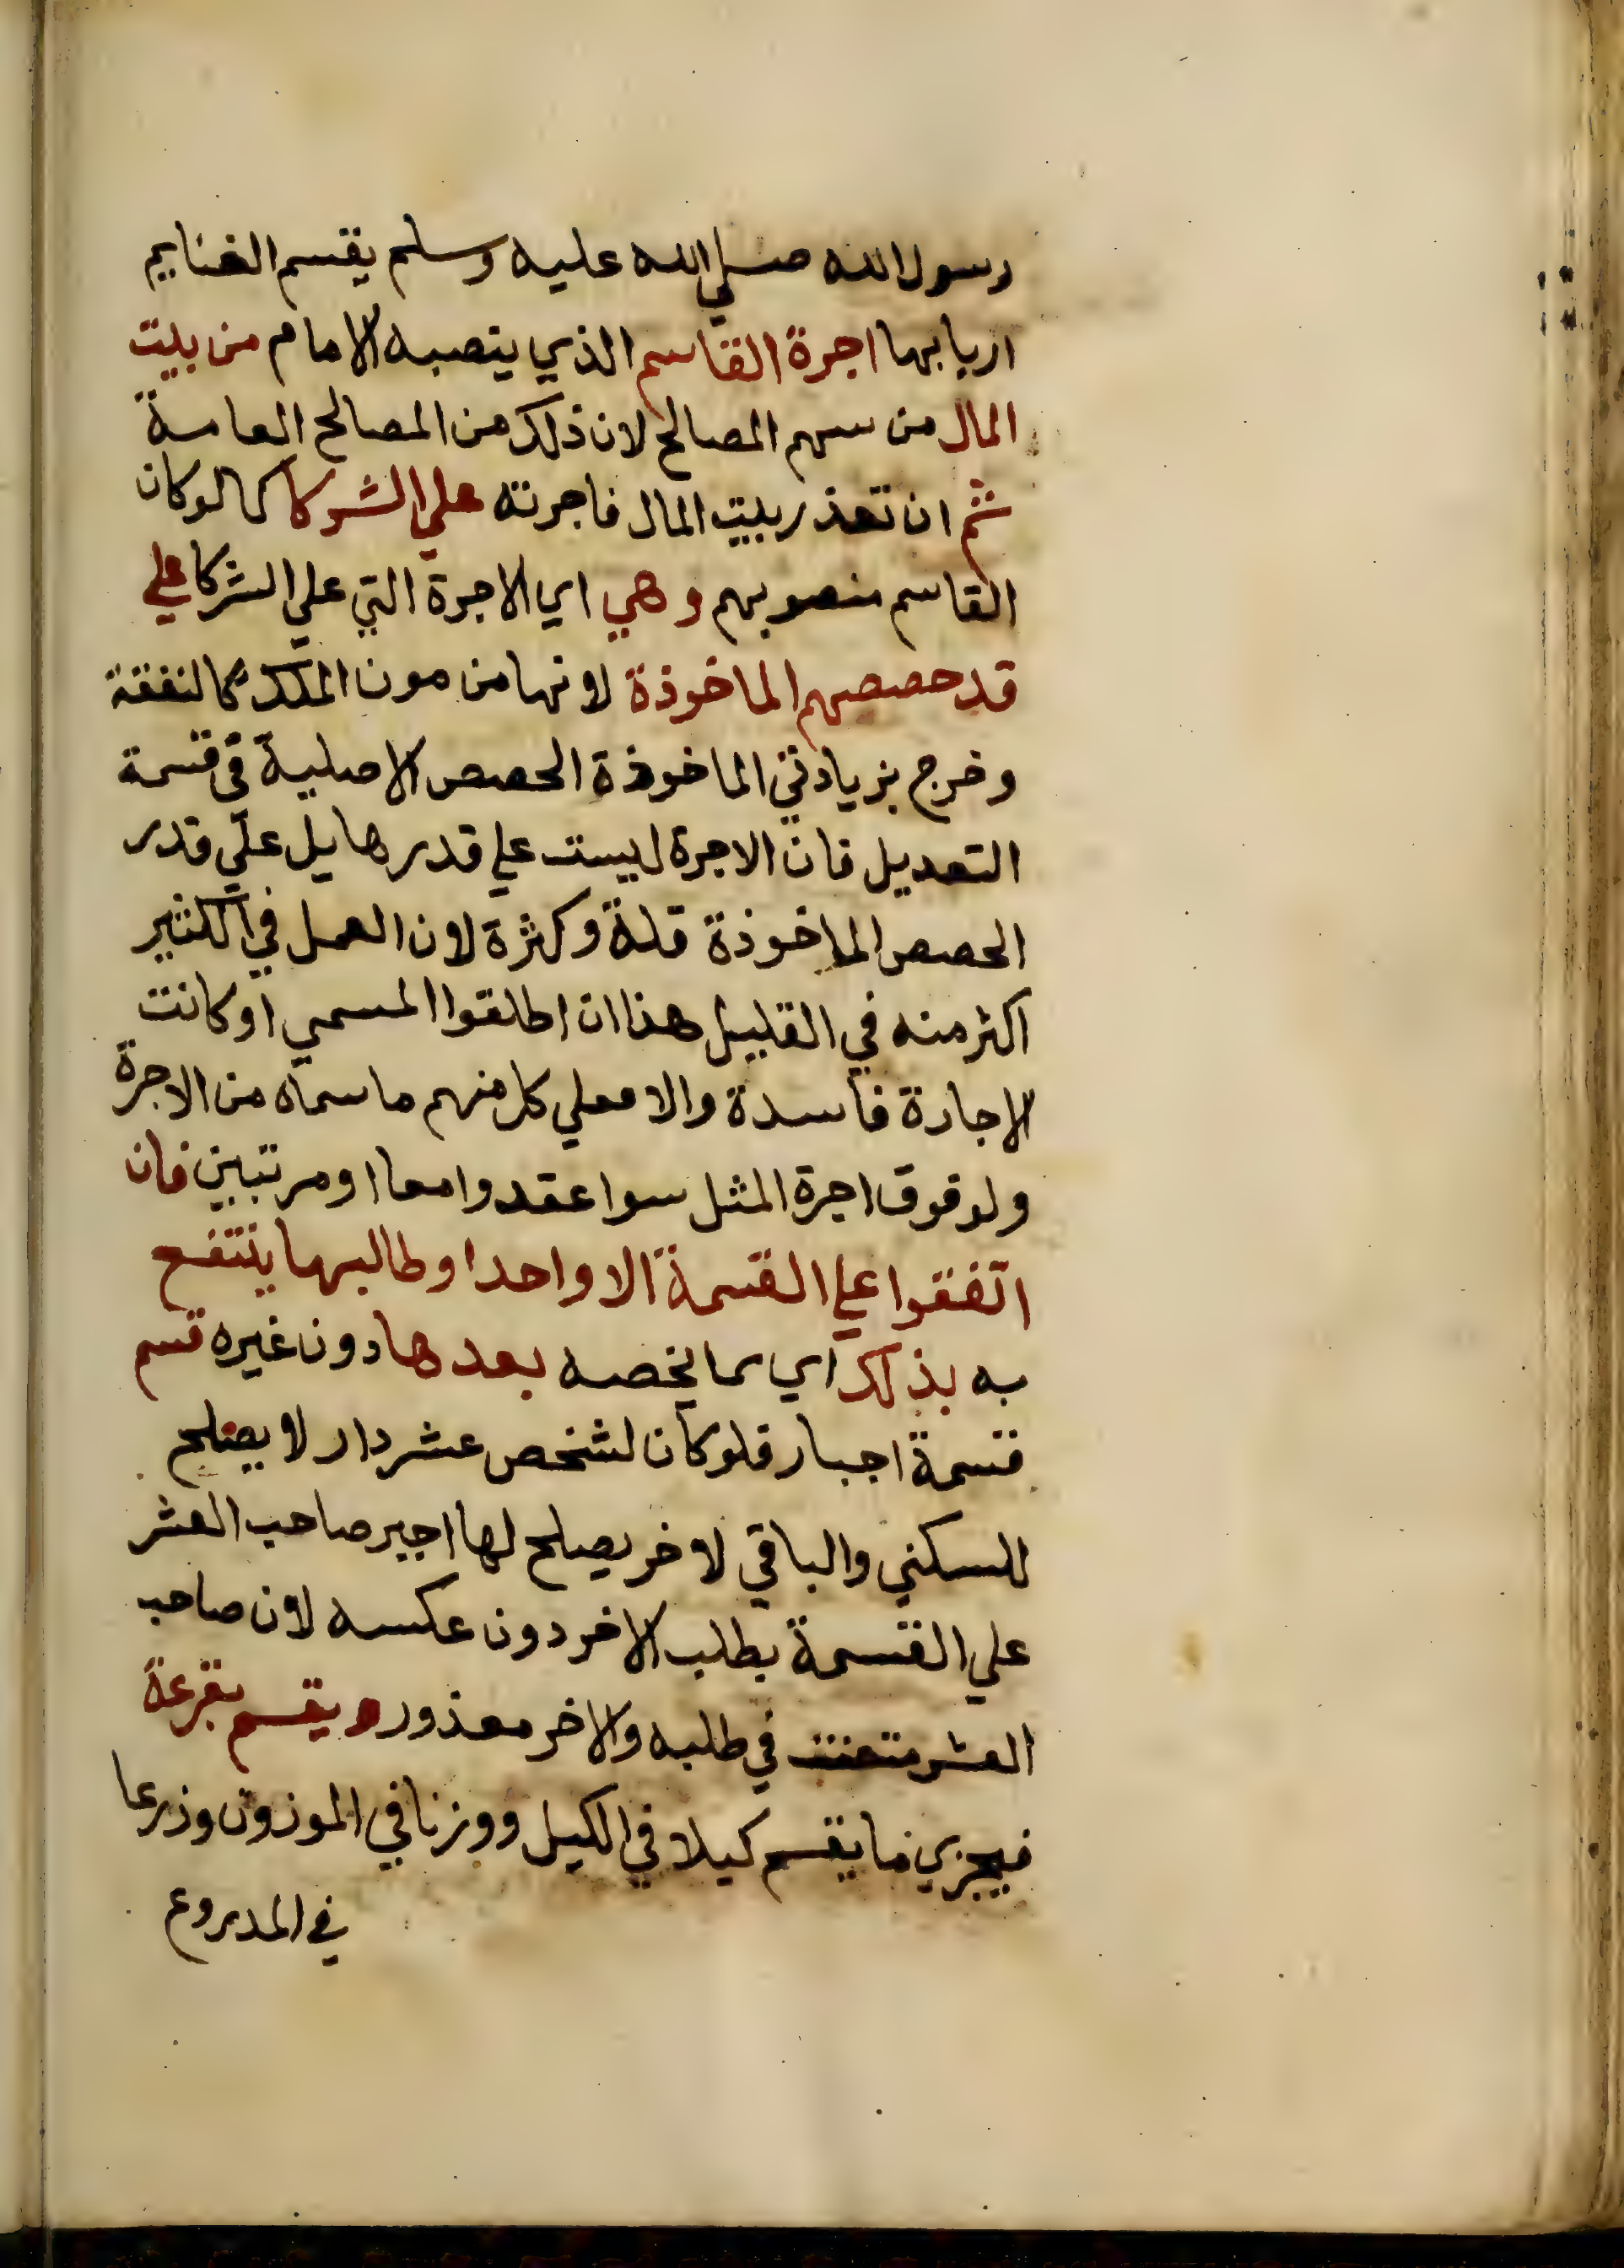 رسول الله صلي الله عليه وسلم يقسم الغنايم
اربابها اجرة القاسم الذي ينصبه الامام من بيت
المال من سهم المصالح لان ذلك من المصالح العامة
ثم ان تعذر بيت المال فاجرته علي الشركا كما لو كان
القاسم منصوبهم وهي اي الاجرة التي علي الشركا علي
قدر حصصهم الماخوذة لانها من مون الملك كالنفقة
وخرج بزيادتي الماخوذة الحصص الاصلية في قسمة
التعديل فان الاجرة ليست علي قدرها بل علي قدر
الحصص الماخوذة قلة وكثرة لان العمل في الكثير
اكثر منه في القليل هذا ان اطلقوا المسمي او كانت
الاجارة فاسدة والا فعلي كل منهم ما سماه من الاجرة
ولو فوق اجرة المثل سوا عقدوا معا او مرتبين فان
اتفقوا علي القسمة الا واحدا وطالبها ينتفع
به بذلك اي بما يخصه بعدها دون غيره قسم
قسمة اجبار فلو كان لشخص عشر دار لا يصلح
للسكني والباقي لاخر يصلح لها اجبر صاحب العشر
علي القسمة بطلب الاخر دون عكسه لان صاحب
العشر متعنت في طلبه والاخر معذور ويقسم بقرعة
فيجزي ما يقسم كيلا في الكيل ووزنا في الموزون وذرعا
في المدروع